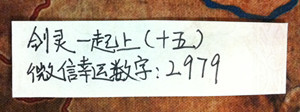 剑灵一起上(十五)
微信幸运数字:2979